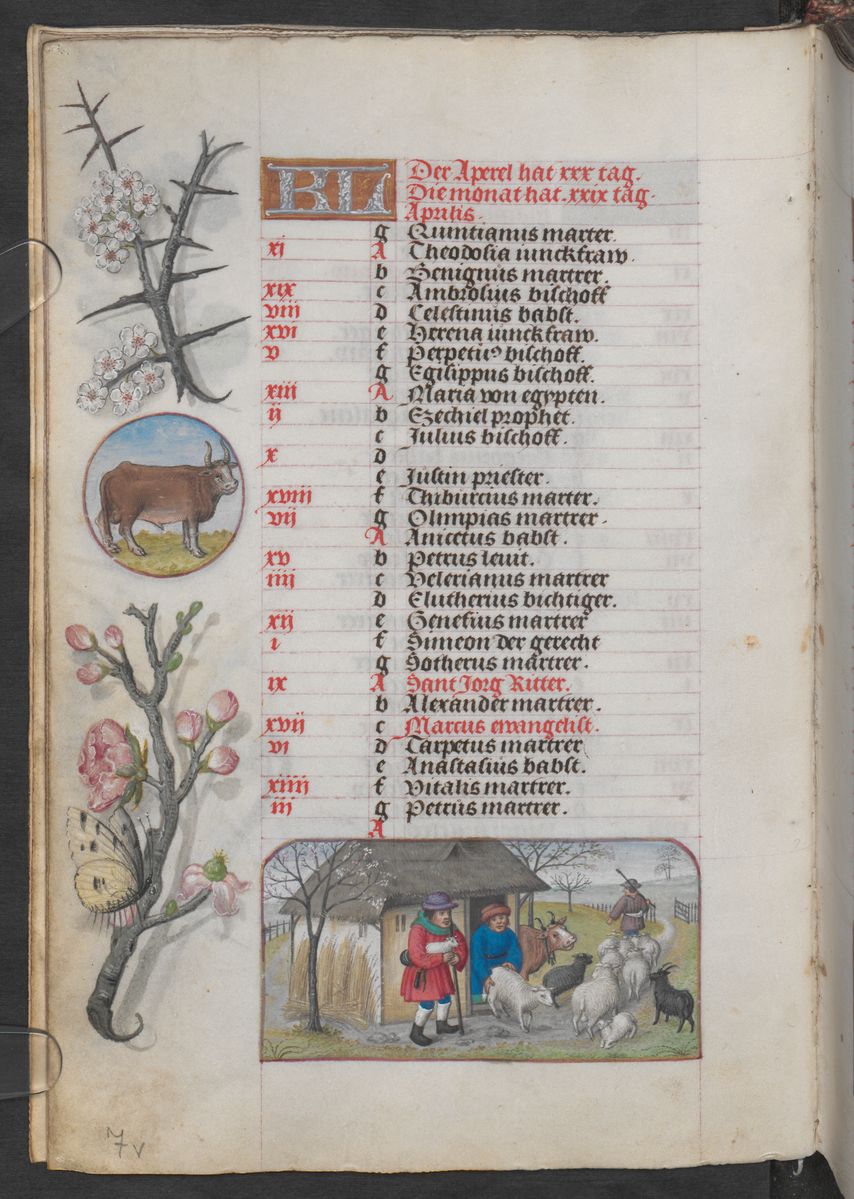 KL Der Aperel hat xxx tag.
Die monat hat. xxix tag.
Aprilis.
g Quintianus marter.
xi A Theodosia iunckfraw.
b Benignus martrer.
xix c Ambrosius bischoff
viii d Celestinus babst.
xvi e Herena iunckfraw.
v f Perpetuꝰ bischoff.
g Egilippus bischoff.
xiii A Maria von egypten.
ij b Ezechiel prophet.
c Iulius bischoff.
x d
e Iustin priester.
xviii f Thiburcius marter.
vij g Olimpias martrer.
A Anicetus babst.
xv b Petrus leuit.
iiij c Velerianus martrer
d Elutherius bichtiger.
xij e Genesius martrer
i f Simeon der gerecht
g Sotherus martrer.
ix A Sant Jorg Ritter.
b Alexander martrer.
xvij c Marcus ewangelist.
vi d Tarpetus martrer
e Anastasius babst.
xiiii f Vitalis martrer.
iij g Petrus martrer.
A
7v